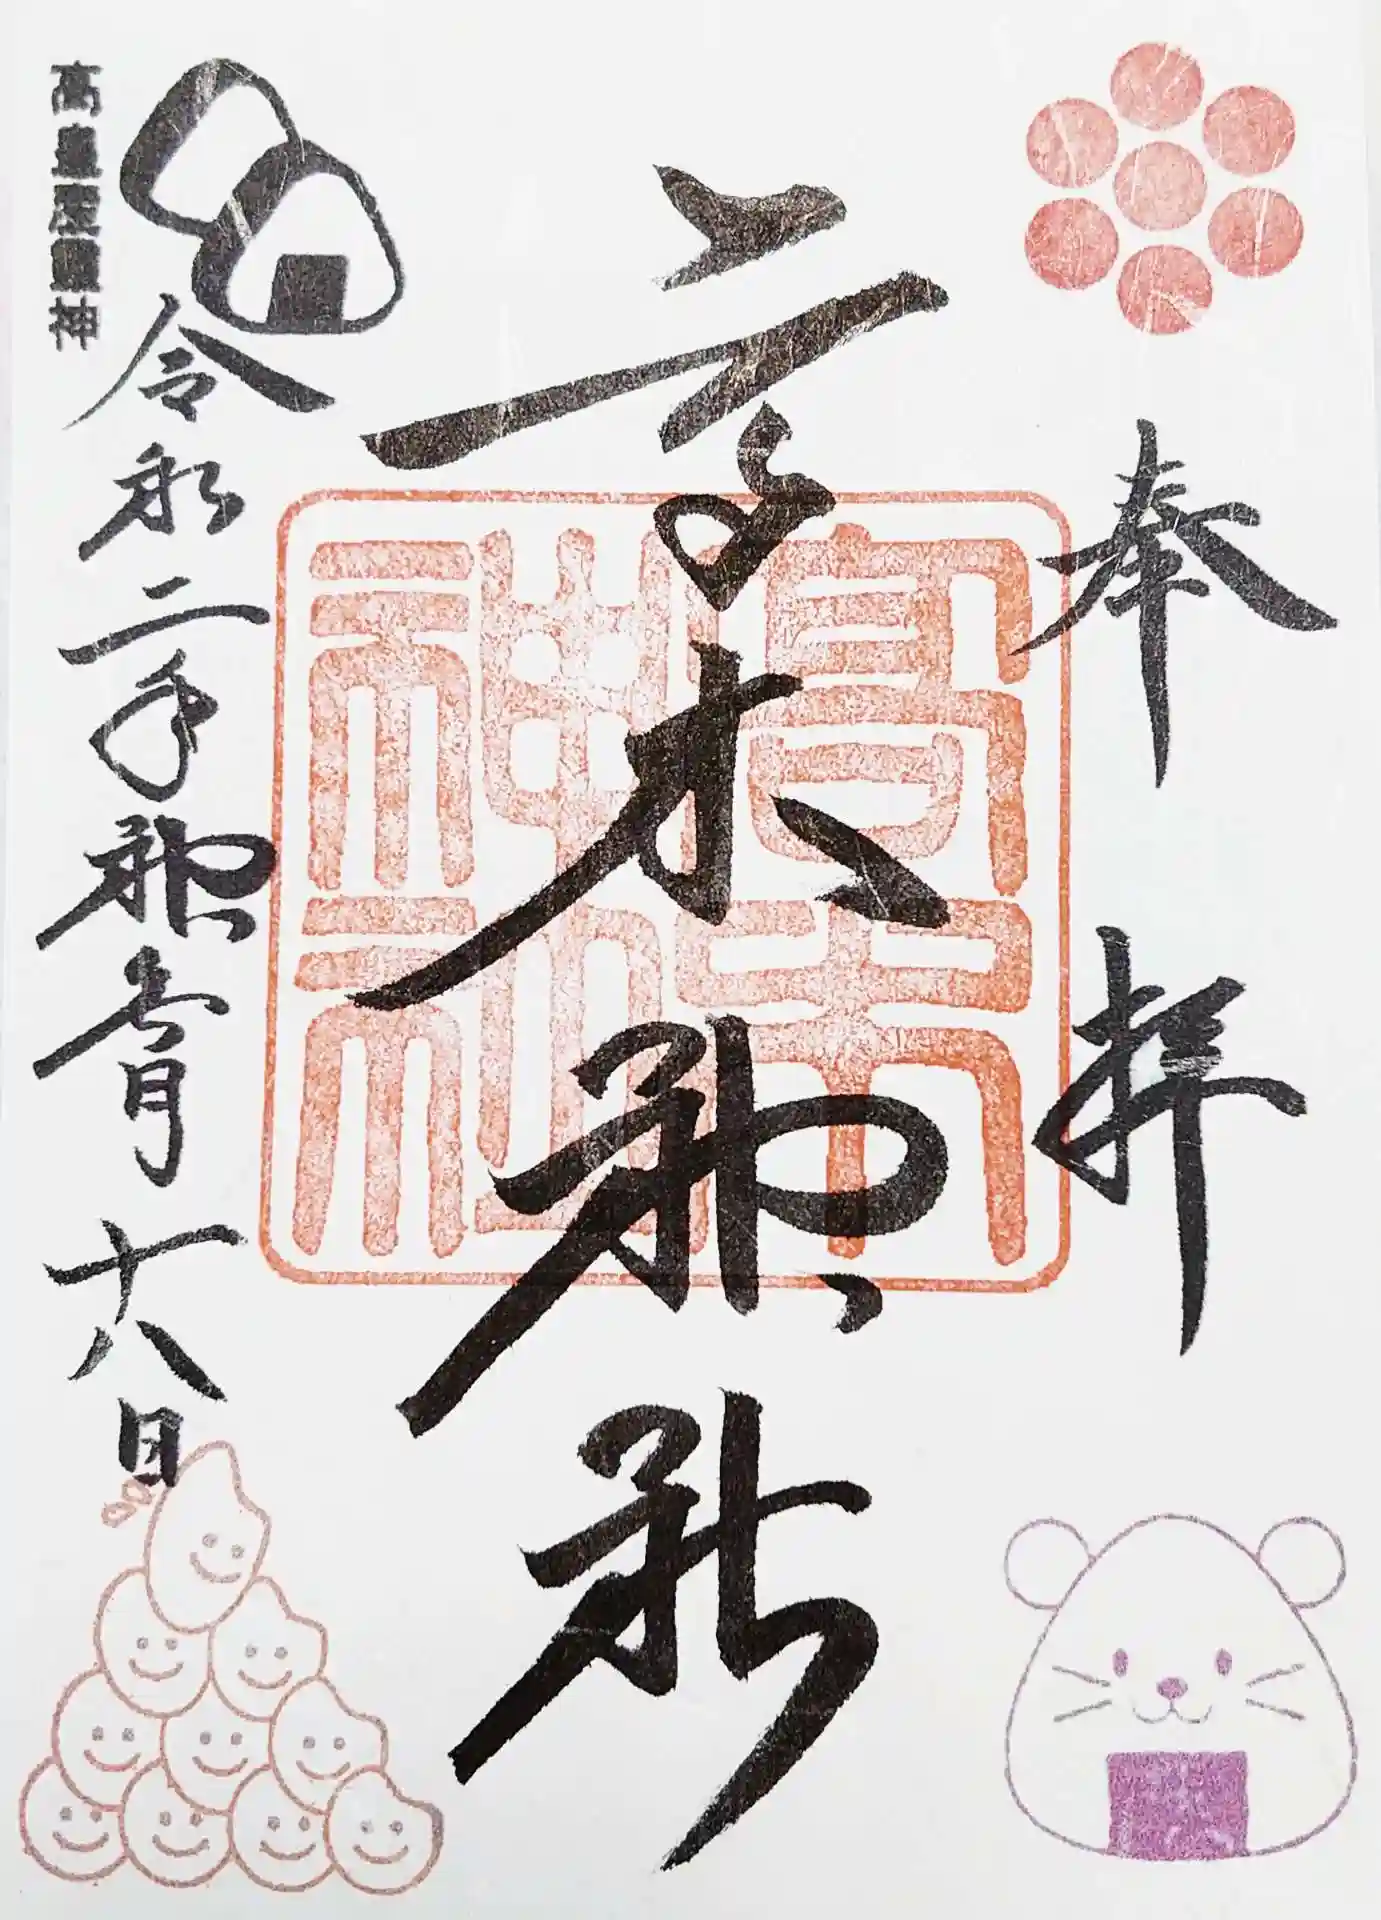 奉拝
高木神社
高木神社
令和二年神無月十八日
高皇産霊神